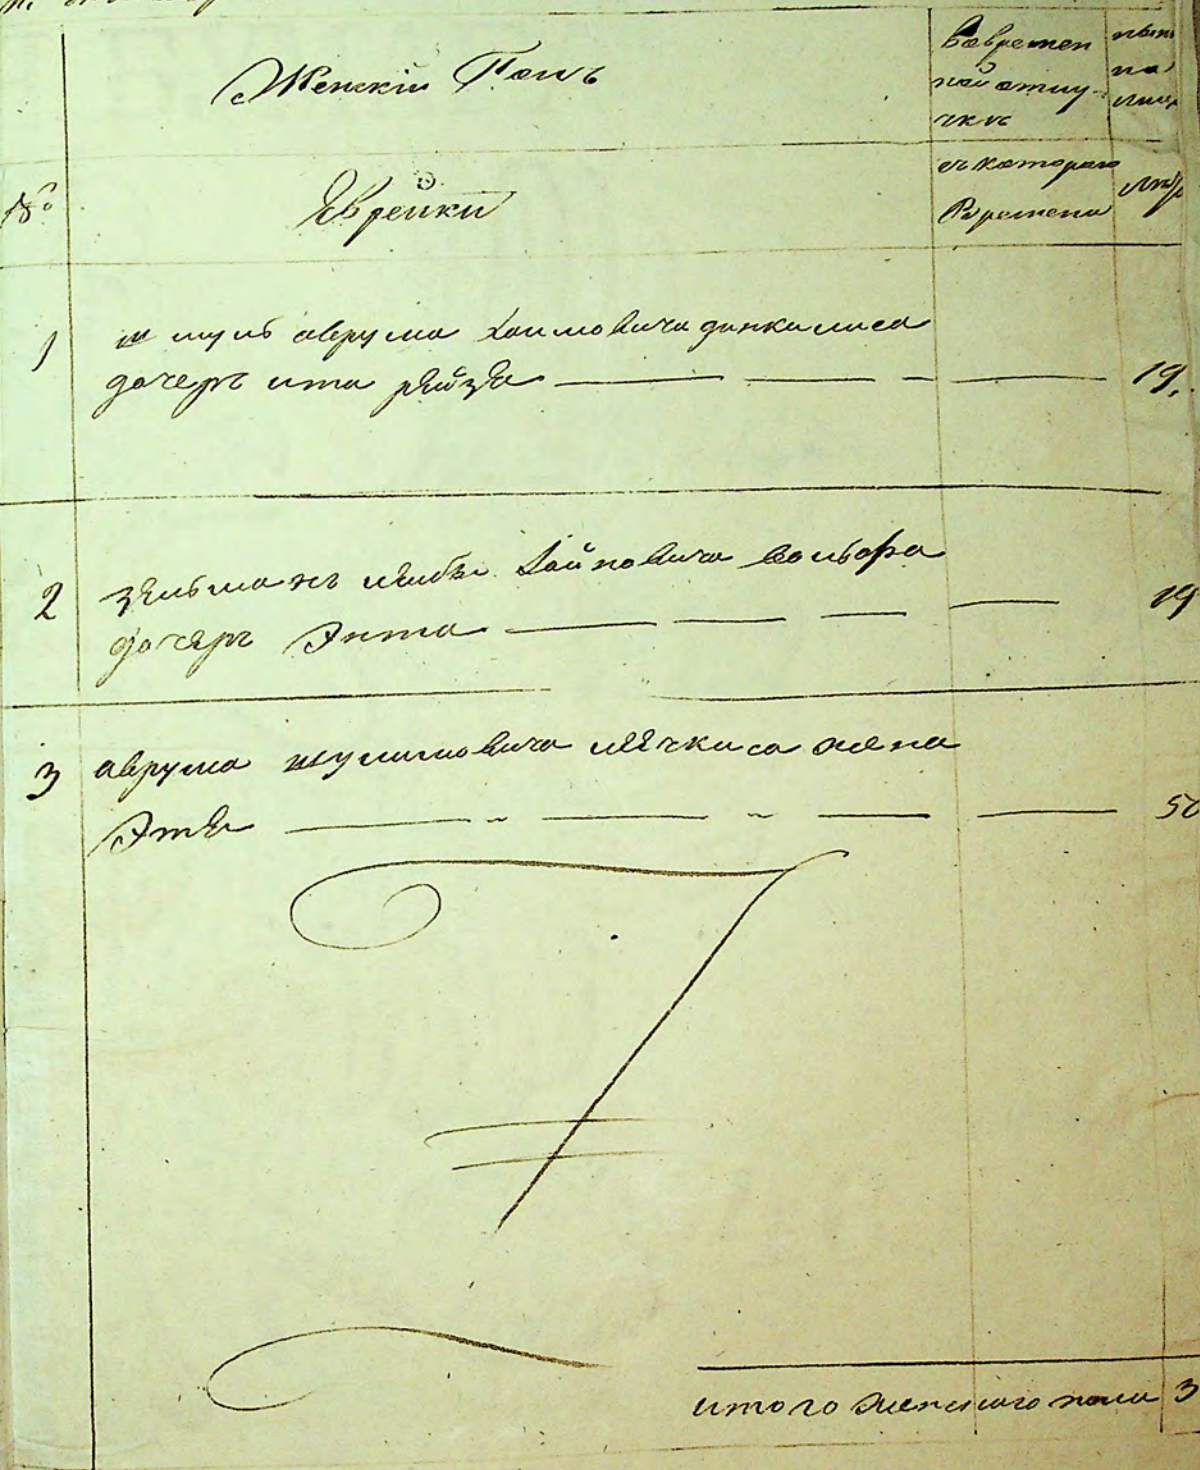 Женскій Полъ
Вовремен
ной отлу
чкъ
№
Еврейки
съ котораго
Времени
1
аврума Хаимовича динкилиса
дочеръ ита рейзя
19
2
зельманъ лейбы Хаймовича вольфа
дочеръ Энта
19
3
аврума шулимовича мечкиса жена
Этя
50
итого женскаго пола 3